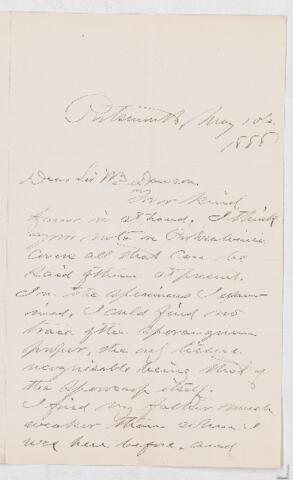 Portsmouth, May 10th
1888
Dear Sir Wm Dawson
Your kind
favor in at hand. I think
your note on
covers all that can be
said of them at present.
In the specimens I exam-
ined, I could find no
trace of the sporangium
proper, the only tissue
recognisable being that of
the sporocarp itself.
I find my father much
weaker than when I
was here before, and